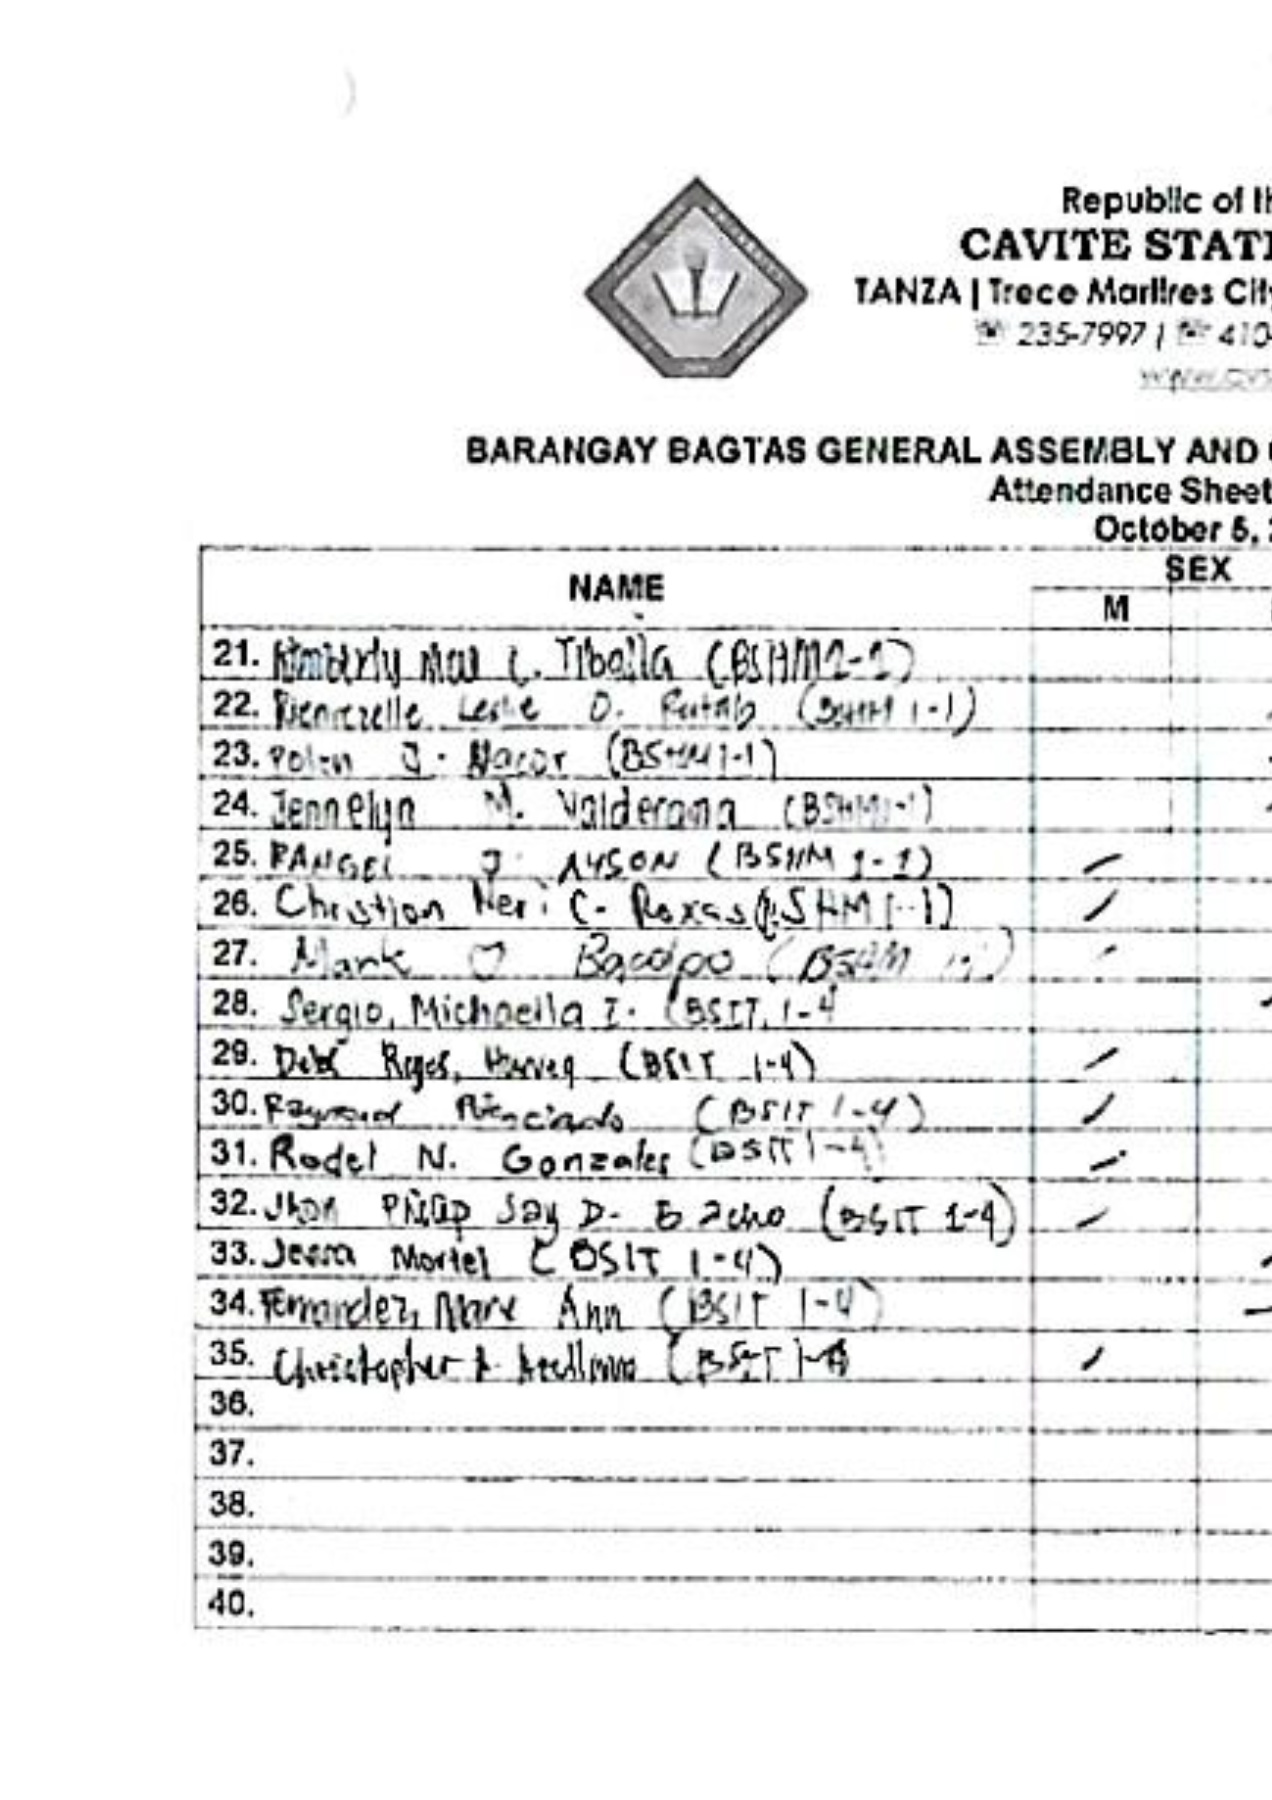 Republic of th
CAVITE STATE
TANZA | Trece Martires City
235-7997 | 410-
www.cvs
BARANGAY BAGTAS GENERAL ASSEMBLY AND
Attendance Sheet
October 5,
NAME
SEX
M
21. Kimberly Mae C. Tibolla (BSHM 1-1)
22. Leslie D. (BSHM 1-1)
23. J. Nacor (BSHM 1-1)
24. Jennelyn M. Valderama (BSHM 1-1)
25. RANGEL J. AYSON (BSHM 1-1)
26. Christian Neri C. Roxas (BSHM 1-1)
27. Mark J (BSHM
28. Sergio, Michaella I. (BSIT 1-4
29. Reyes, (BSIT 1-4)
30. Raymond (BSIT 1-4)
31. Rodel N. Gonzales (BSIT 1-4)
32. Jhon Philip Jay D. Bacho (BSIT 1-4)
33. Jessa Mortel (BSIT 1-4)
34. Fernandez, Mary Ann (BSIT 1-4)
35. Christopher A. Arellano (BSIT 1-4
36.
37.
38.
39.
40.